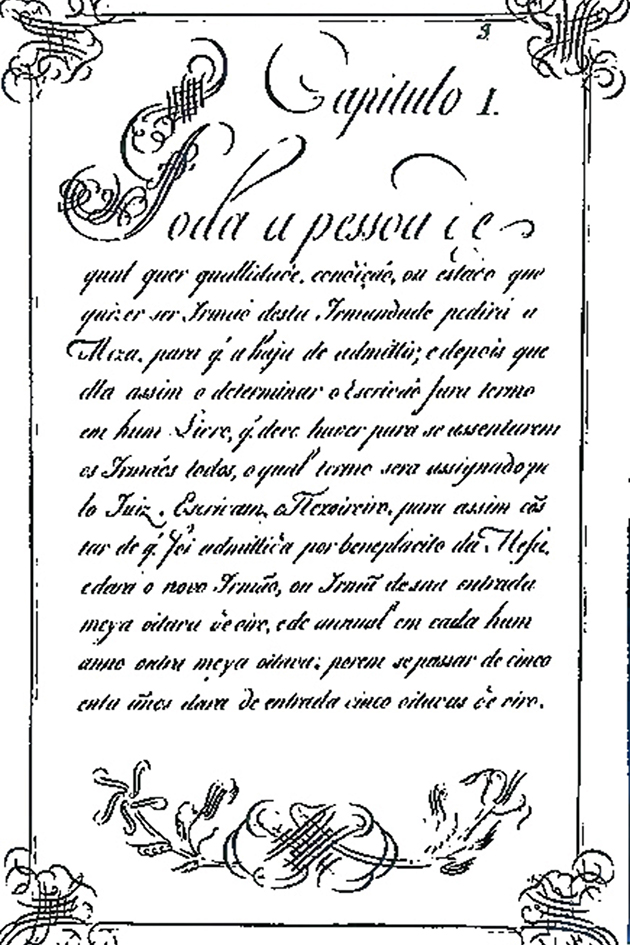 Capitulo 1.
Toda a pessoa de
qual quer quallidade, condição, ou estado que
quizer ser Irmaõ desta Irmandade pedirá a
Meza, para q' a haja de admittir; e depois que
ella assim o determinar o Escrivão fara termo
em hum Livro, q' deve haver para se assentarem
os Irmãos todos, o qual termo sera assignado pe
lo Juiz, Escrivam, e Thezoireiro, para assim cõs
tar de q' foi admittida por beneplacito da Meza,
e dara o novo Irmão, ou Irmã de sua entrada
meya oitava de oiro, e de annual em cada hum
anno outra meya oitava; porem se passar de cinco
enta años dara de entrada cinco oitavas de oiro.